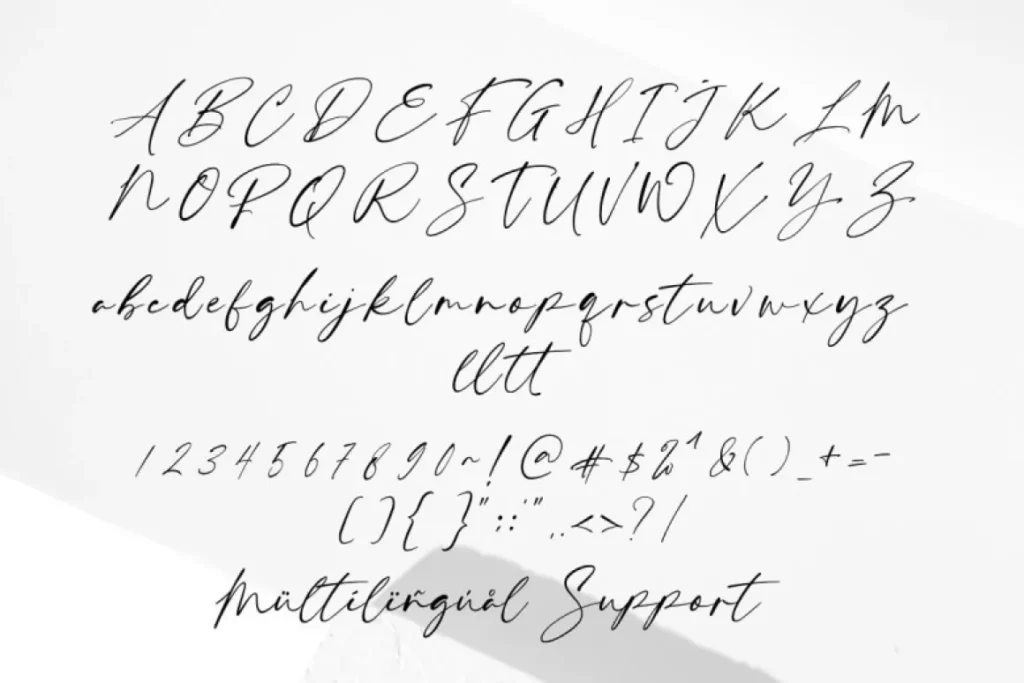 A B C D E F G H I J K L M
N O P Q R S T U V W X Y Z
abcdefghijklmnopqrstuvwxyz
lltt
1 2 3 4 5 6 7 8 9 0 ~ ! @ # $ % ^ & ( ) _ + = -
[ ] { } " : ; ' " , . < > ? /
Mültílïñgúål Support